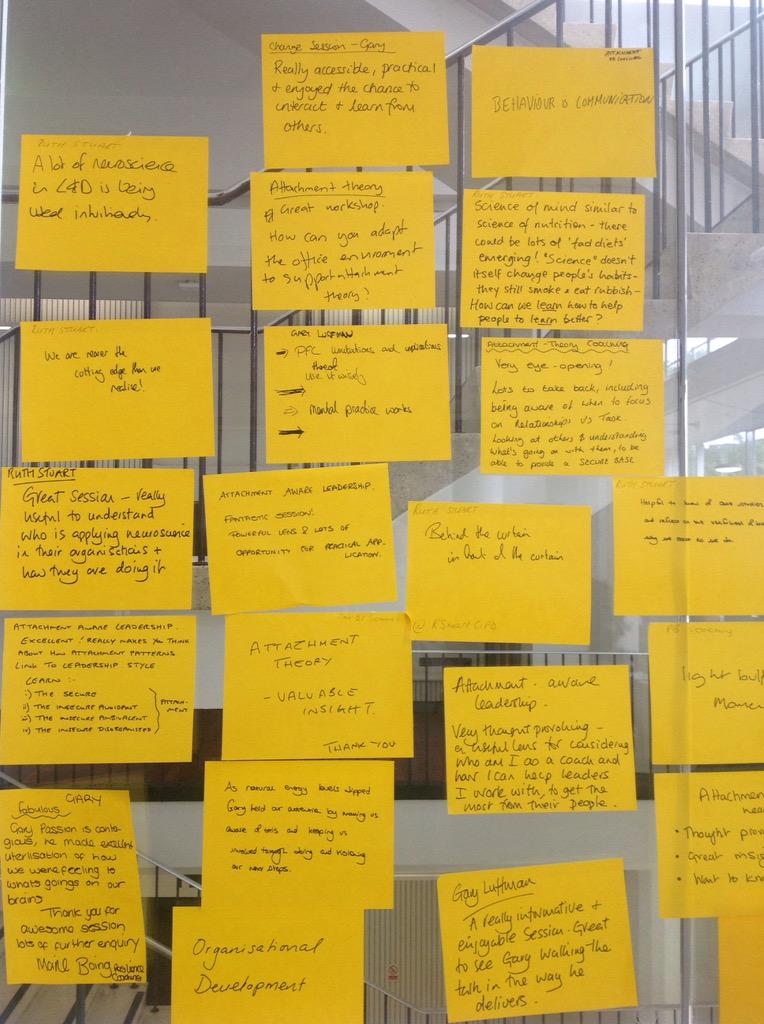 Change Session - Gary
Really accessible, practical
+ enjoyed the chance to
interact + learn from
others.
ATTACHMENT
BEHAVIOUR is COMMUNICATION
RUTH STUART
A lot of neuroscience
in L&D is being
used intuitively.
Attachment theory
Great workshop.
How can you adapt
the office environment
to support attachment
theory?
RUTH STUART
Science of mind similar to
science of nutrition - there
could be lots of 'fad diets'
emerging! "Science" doesn't
itself change people's habits -
they still smoke & eat rubbish -
How can we learn how to help
people to learn better?
RUTH STUART
We are nearer the
cutting edge than we
realise!
GARY LUFFMAN
→ PFC limitations and implications
thereof
use it wisely
⇒ Mental practice works
Attachment - Theory Coaching
Very eye-opening!
Lots to take back, including
being aware of when to focus
on Relationships vs Task.
Looking at others & understanding
what's going on with them, to be
able to provide a SECURE BASE
RUTH STUART
Great Session - really
useful to understand
who is applying neuroscience
in their organisations +
how they are doing it
ATTACHMENT AWARE LEADERSHIP.
FANTASTIC SESSION.
POWERFUL LENS & LOTS OF
OPPORTUNITY FOR PRACTICAL APP-
LICATION.
RUTH STUART
Behind the curtain
in front of the curtain
@RStuartCIPD
RUTH STUART
Helpful to
and
why we do
ATTACHMENT AWARE LEADERSHIP.
EXCELLENT! REALLY MAKES YOU THINK
ABOUT HOW ATTACHMENT PATTERNS
LINK TO LEADERSHIP STYLE
LEARN :-
i) THE SECURE
ii) THE INSECURE AVOIDANT
iii) THE INSECURE AMBIVALENT
iv) THE INSECURE DISORGANISED
ATTACH-
MENT
ATTACHMENT
THEORY
- VALUABLE
INSIGHT.
THANK YOU
Attachment - aware
leadership.
Very thought provoking -
a useful lens for considering
who am I as a coach and
how I can help leaders
I work with, to get the
most from their people.
Coaching
light bulb
Momen
GARY
fabulous
Gary Passion is conta-
gious, he made excellent
uterlisation of how
we were feeling to
whats goings on our
brains
Thank you for
awesome session
lots of further enquiry
Marie Boing Resilience
Coaching
As natural energy levels dipped
Gary held our audience by making us
aware of this and keeping us
involved through doing and
our next steps.
Attachmen
Thought prov
Great insig
Want to kno
Organisational
Development
Gary Luffman
A really informative +
enjoyable session. Great
to see Gary walking the
talk in the way he
delivers.